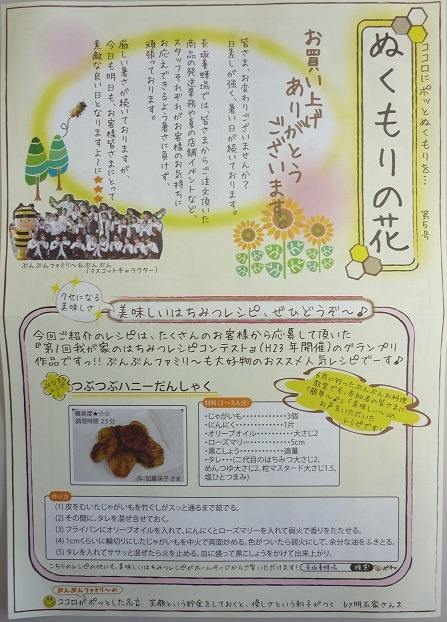 ココロにポッとぬくもりを…
ぬくもりの花
第5号
お買い上げ
ありがとう
ございます。
皆さま、お変わりございませんか?
日差しが強く、暑い日が続いております。
長坂養蜂場では、皆さまからご注文頂いた
商品の発送業務や夏の店舗イベントなど、
スタッフそれぞれがお客様のお気持ちに
お応えできるよう暑さに負けず、
頑張っております。
厳しい暑さが続いておりますが、
今日も明日も、お客様皆さまにとって
素敵な良い日となりますように★★★
ぶんぶんファミリ〜&ぶんぶん
(マスコットキャラクター)
クセになる
美味しさ
美味しいはちみつレシピ、ぜひどうぞ〜♪
今回ご紹介のレシピは、たくさんのお客様から応募して頂いた
『第1回我が家のはちみつレシピコンテスト』(H23年開催)のグランプリ
作品ですっ!!ぶんぶんファミリ〜も大好物のおススメ人気レシピでーす♪
つぶつぶハニーだんしゃく
難易度★☆☆
調理時間 25分
作:加藤栄子さま
材料(2〜3人分)
・じゃがいも…………3個
・にんにく……………1片
・オリーブオイル………大さじ2
・ローズマリー…………5cm
・黒こしょう……………適量
・タレ…(二代目のはちみつ大さじ2、
めんつゆ大さじ2、粒マスタード大さじ1.5、
塩ひとつまみ)
6月に行ったぶんぶんお料理
教室でも、参加者の皆さまに
「簡単〜♪」「美味しい〜♪」の
お声をいただいた
レシピです!!
作り方
(1) 皮をむいたじゃがいもを竹ぐしがスッと通るまで茹でる。
(2) その間に、タレを混ぜ合せておく。
(3) フライパンにオリーブオイルを入れて、にんにくとローズマリーを入れて弱火で香りをたたせる。
(4) 1cmくらいに輪切りにしたじゃがいもを中火で両面炒める。色がついたら弱火にして、余分な油をふきとる。
(5) タレを入れてササッと混ぜたら火を止める。皿に盛って黒こしょうをかけて出来上がり。
こちらのレシピの他にも、美味しいはちみつレシピがホームページからご覧いただけます! 長坂養蜂場 検索
ぶんぶんファミリ〜の
ココロがポッとした名言 笑顔という貯金をしておくと、優しさという利子がつく by明石家さんま